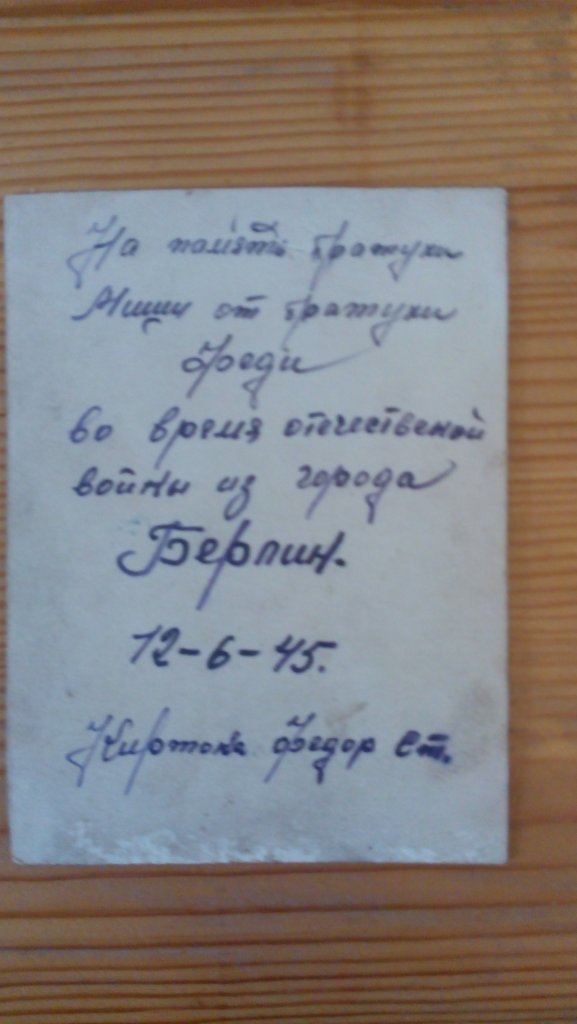 На память братухи
Миши от братухи
Феди
во время отечественой
войны из города
Берлин.
12-6-45.
Федор Ст.